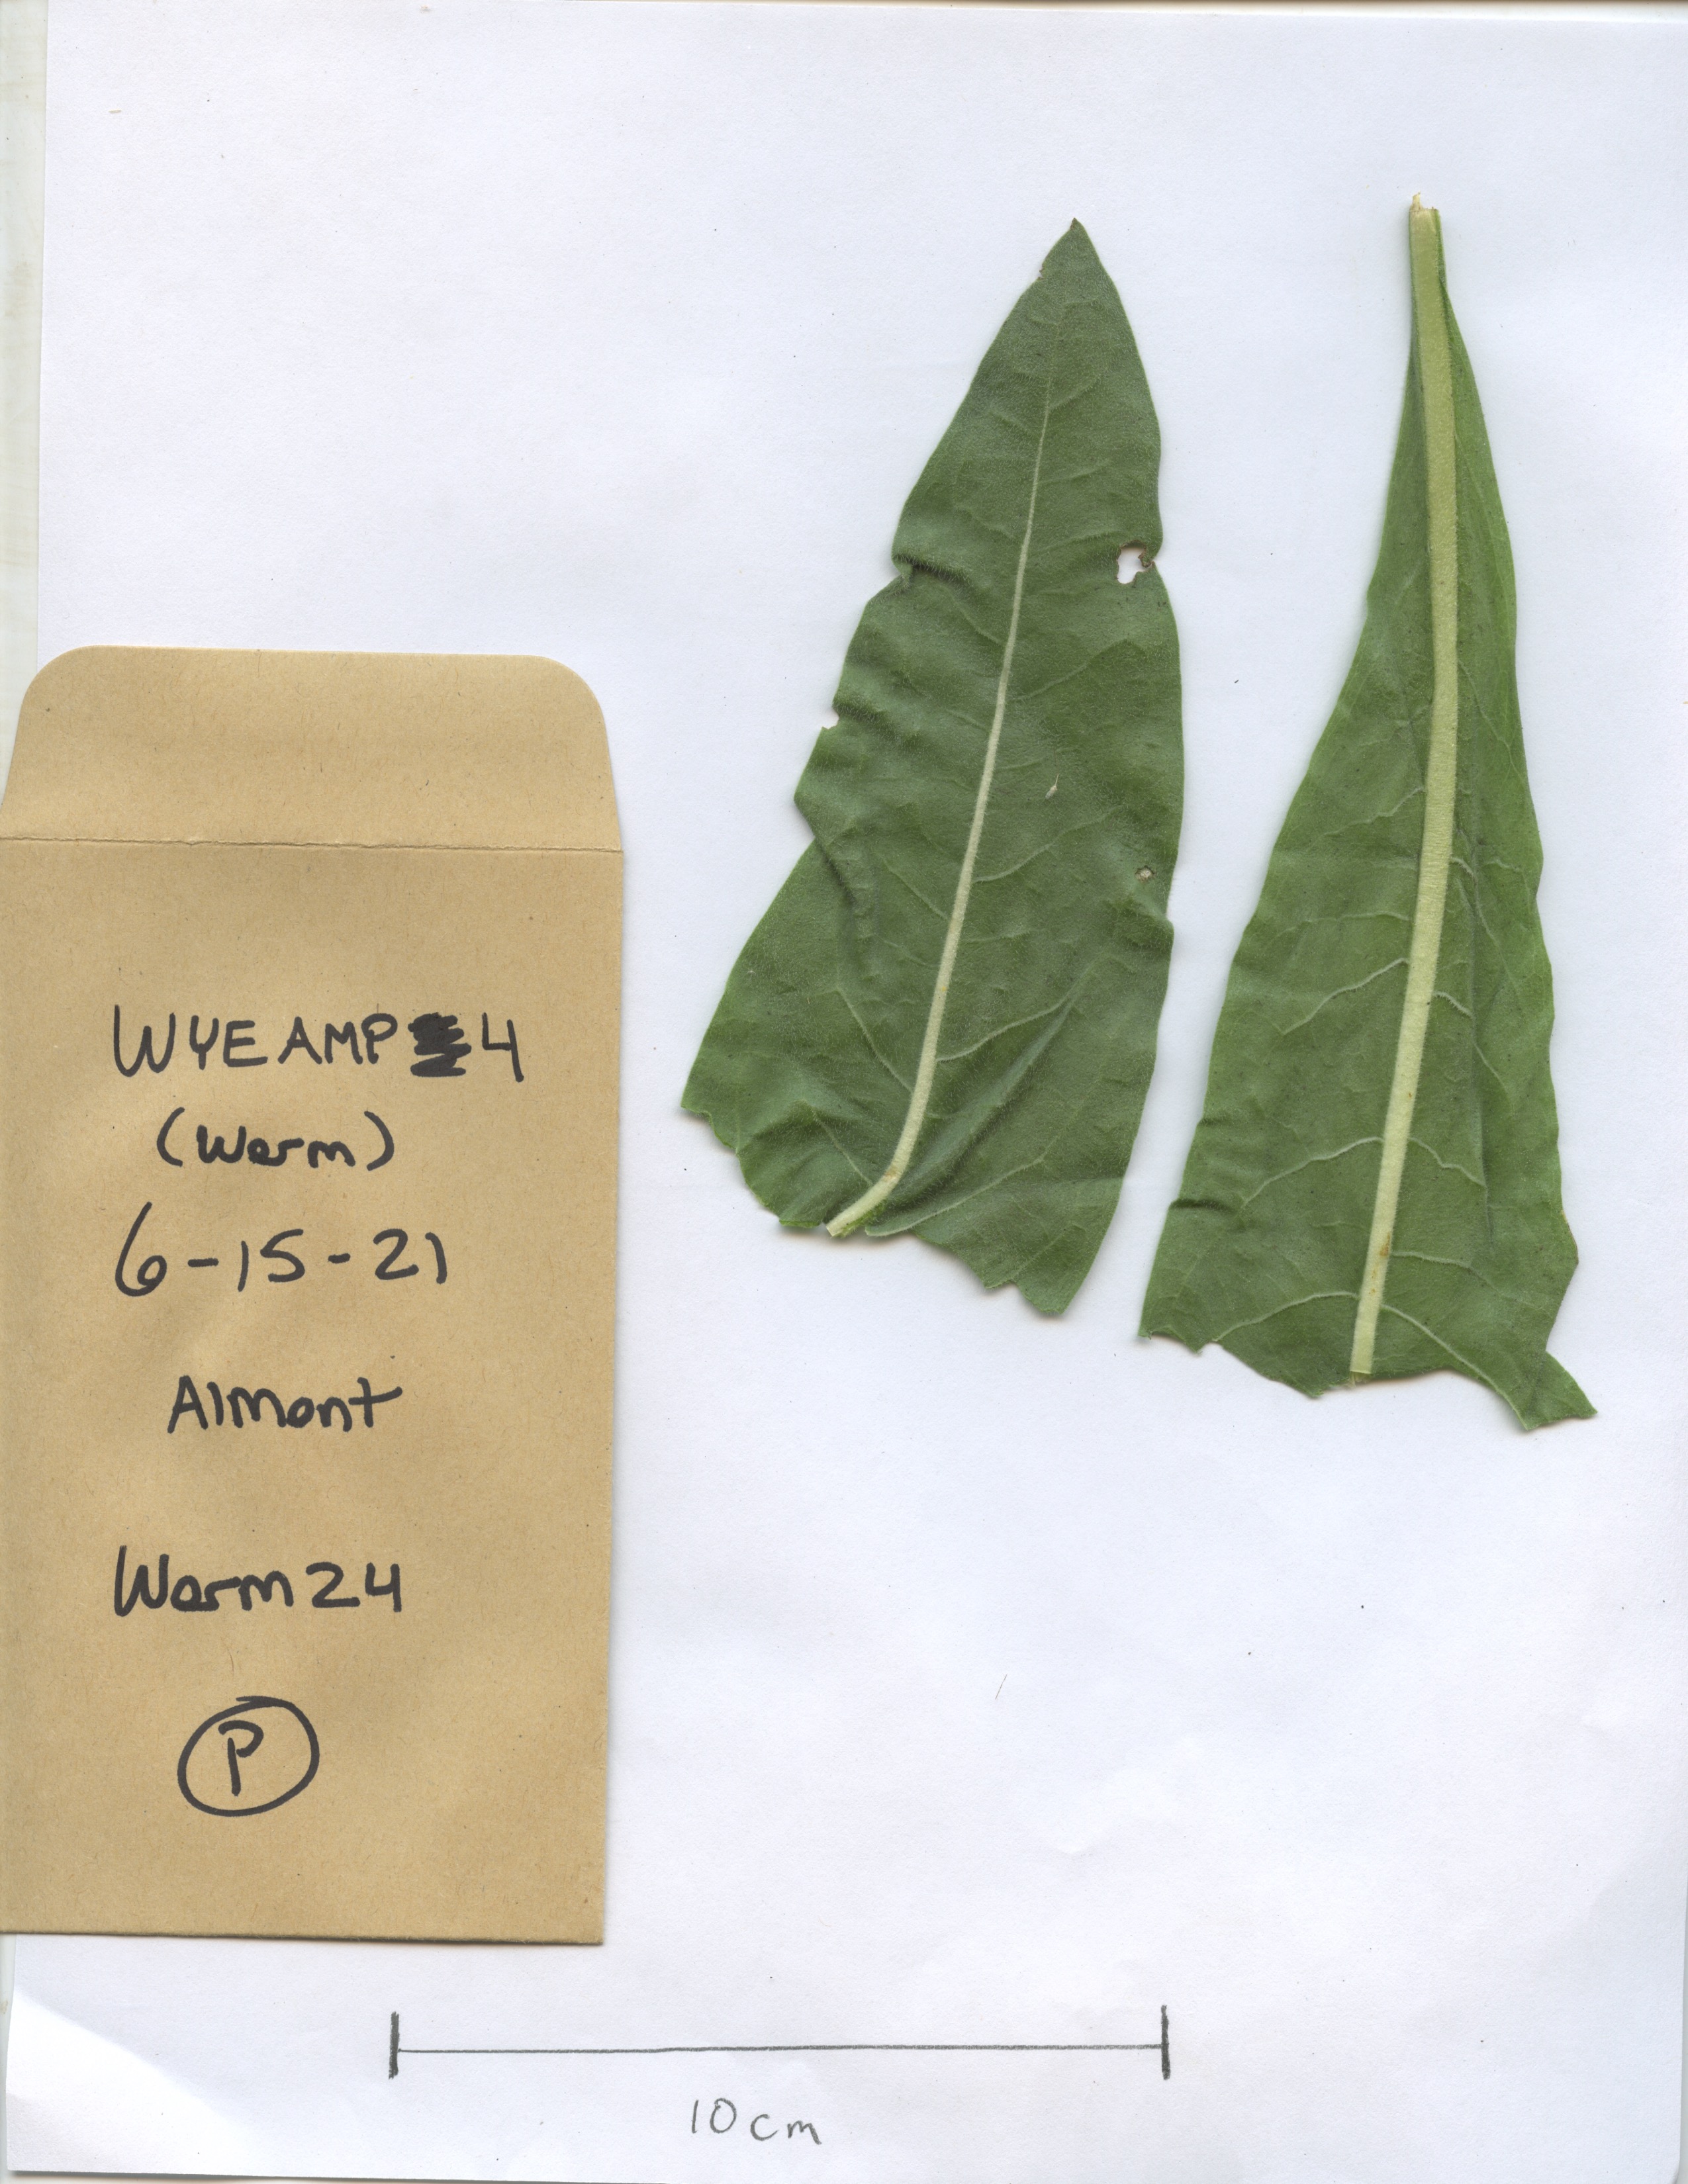 WYEAMP 4
(Warm)
6-15-21
Almont
Warm 24
P
10 cm